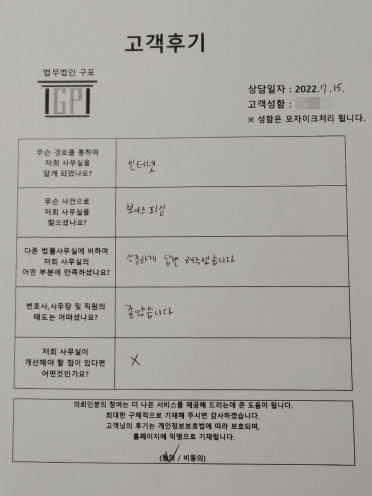 고객후기
법무법인 구포
GP
상담일자 : 2022.7.15.
고객성함 :
※ 성함은 모자이크처리 됩니다.
무슨 경로를 통하여
저희 사무실을
알게 되었나요?
인터넷
무슨 사건으로
저희 사무실을
찾으셨나요?
보이스피싱
다른 법률사무실에 비하여
저희 사무실의
어떤 부분에 만족하셨나요?
신중하게 답변 해주셨습니다
변호사,사무장 및 직원의
태도는 어떠셨나요?
좋았습니다
저희 사무실이
개선해야 할 점이 있다면
어떤것인가요?
X
의뢰인분의 참여는 더 나은 서비스를 제공해 드리는데 큰 도움이 됩니다.
최대한 구체적으로 기재해 주시면 감사하겠습니다.
고객님의 후기는 개인정보보호법에 따라 보호되며,
홈페이지에 익명으로 기재됩니다.
(동의 / 비동의)